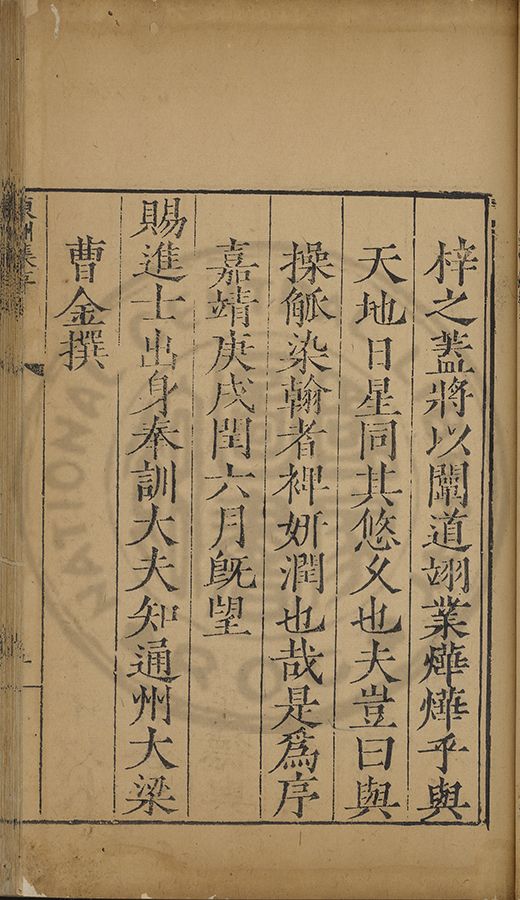 梓之蓋將以闡道翊業燁燁乎與
天地日星同其悠久也夫豈曰與
操觚染翰者裨妍潤也哉是爲序
嘉靖庚戌閏六月旣望
賜進士出身奉訓大夫知通州大梁
曹金撰